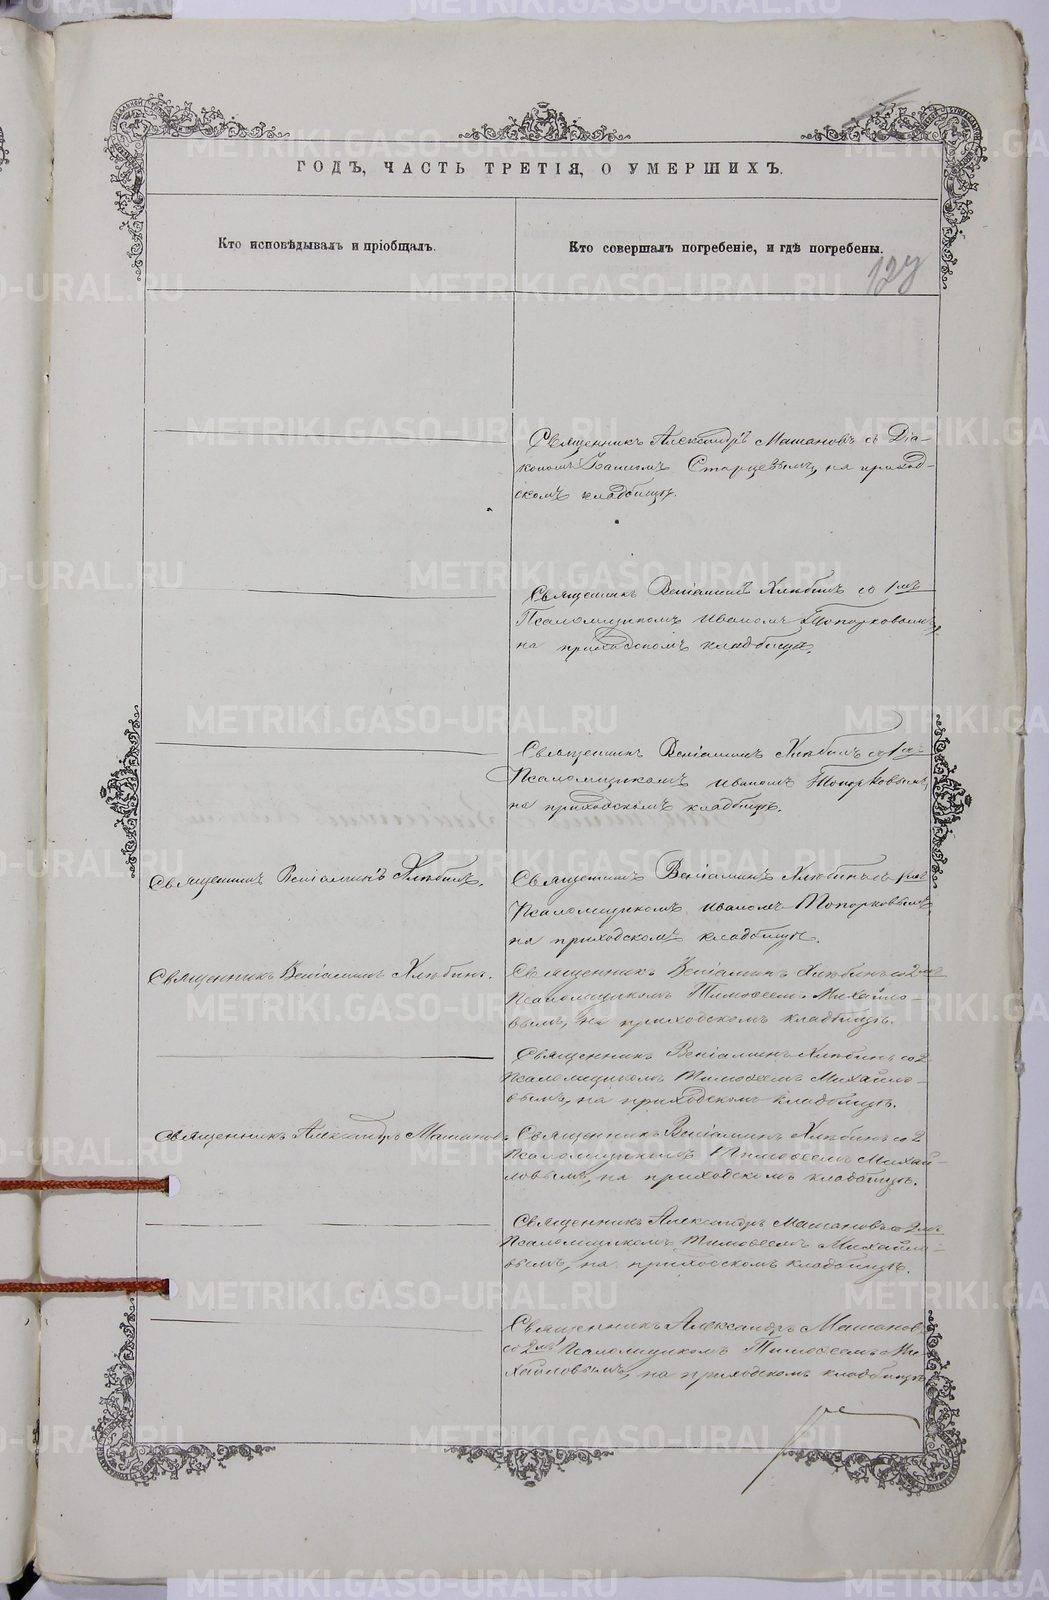 ГОДЪ, ЧАСТЬ ТРЕТІЯ, О УМЕРШИХЪ.
Кто исповѣдывалъ и пріобщалъ.
Кто совершалъ погребеніе, и гдѣ погребены.
127
Священникъ Александръ Машановъ съ Діа-
кономъ Старцевымъ, на приход-
скомъ кладбищѣ.
Священникъ Веніаминъ Хлѣбинъ со 1мъ
Псаломщикомъ Иваномъ Топорковымъ,
на приходскомъ кладбищѣ.
Священникъ Веніаминъ Хлѣбинъ со 1мъ
Псаломщикомъ Иваномъ Топорковымъ,
на приходскомъ кладбищѣ.
Священникъ Веніаминъ Хлѣбинъ.
Священникъ Веніаминъ Хлѣбинъ съ 1мъ
Псаломщикомъ Иваномъ Топорковымъ,
на приходскомъ кладбищѣ.
Священникъ Веніаминъ Хлѣбинъ.
Священникъ Веніаминъ Хлѣбинъ со 2мъ
Псаломщикомъ Тимофеемъ Михайло-
вымъ, на приходскомъ кладбищѣ.
Священникъ Веніаминъ Хлѣбинъ со 2
Псаломщикомъ Тимофеемъ Михайло-
вымъ, на приходскомъ кладбищѣ.
Священникъ Александръ Машановъ
Священникъ Веніаминъ Хлѣбинъ со 2
Псаломщикомъ Тимофеемъ Михай-
ловымъ, на приходскомъ кладбищѣ.
Священникъ Александръ Машановъ со 2мъ
Псаломщикомъ Тимофеемъ Михайло-
вымъ, на приходскомъ кладбищѣ.
Священникъ Александръ Машановъ
со 2мъ Псаломщикомъ Тимофеемъ Ми-
хайловымъ, на приходскомъ кладбищѣ
METRIKI.GASO-URAL.RU